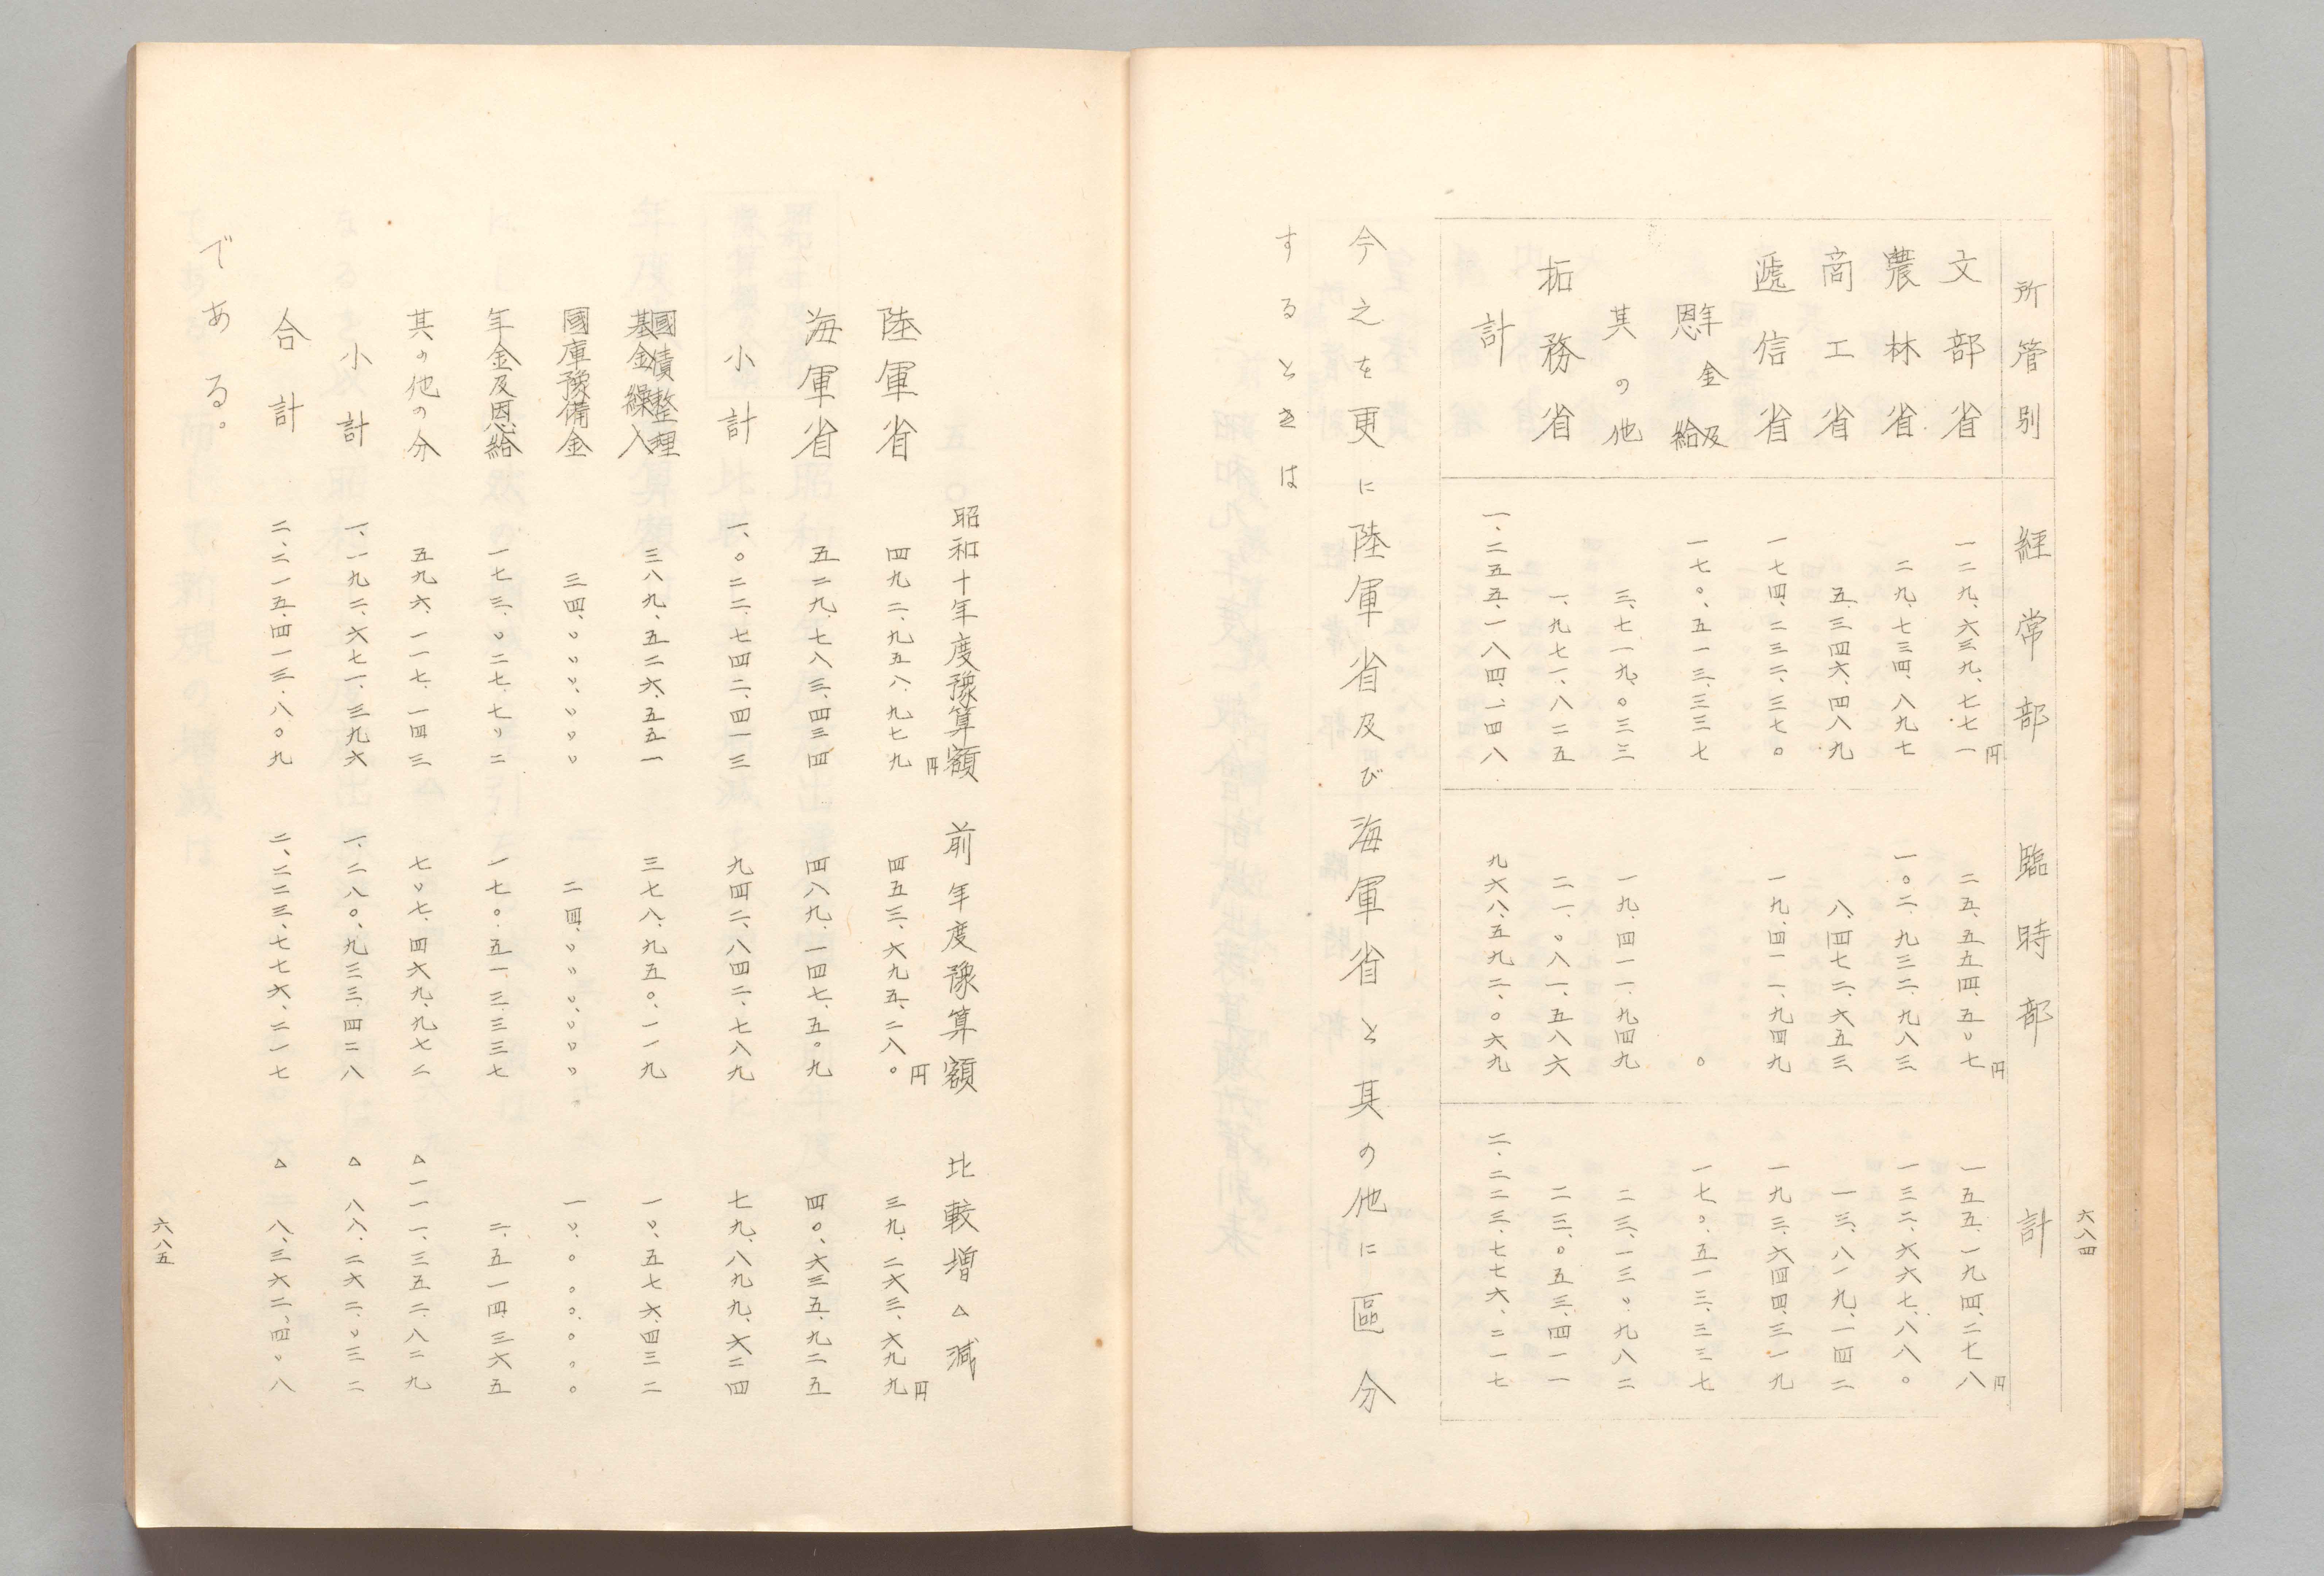 六八四
所管別 經常部 臨時部 計
文部省 一二九、六三九、七七一円 二五、五五四、五〇七円 一五五、一九四、二七八円
農林省 二九、七三四、八九七 一〇二、九三二、九八三 一三二、六六七、八八〇
商工省 五、三四六、四八九 八、四七二、六五三 一三、八一九、一四二
遞信省 一七四、二三二、三七〇 一九、四一一、九四九 一九三、六四四、三一九
年金及恩給 一七〇、五一三、三三七 〇 一七〇、五一三、三三七
其の他 三、七一九、〇三三 一九、四一一、九四九 二三、一三〇、九八二
拓務省 一、九七一、八二五 二一、〇八一、五八六 二三、〇五三、四一一
計 一、二五五、一八四、一四八 九六八、五九二、〇六九 二、二二三、七七六、二一七
今之を更に陸軍省及び海軍省と其の他に區分
するときは
昭和十年度豫算額 前年度豫算額 比較増△減
陸軍省 四九二、九五八、九七九円 四五三、六九五、二八〇円 三九、二六三、六九九円
海軍省 五二九、七八三、四三四 四八九、一四七、五〇九 四〇、六三五、九二五
小計 一、〇二二、七四二、四一三 九四二、八四二、七八九 七九、八九九、六二四
國債整理基金繰入 三八九、五二六、五五一 三七八、九五〇、一一九 一〇、五七六、四三二
國庫豫備金 三四、〇〇〇、〇〇〇 二四、〇〇〇、〇〇〇 一〇、〇〇〇、〇〇〇
年金及恩給 一七三、〇二七、七〇二 一七〇、五一三、三三七 二、五一四、三六五
其の他の分 五九六、一一七、一四三 七〇七、四六九、九七二 △一一一、三五二、八二九
小計 一、一九二、六七一、三九六 一、二八〇、九三三、四二八 △八八、二六二、〇三二
合計 二、二一五、四一三、八〇九 二、二二三、七七六、二一七 △八、三六二、四〇八
である。
六八五